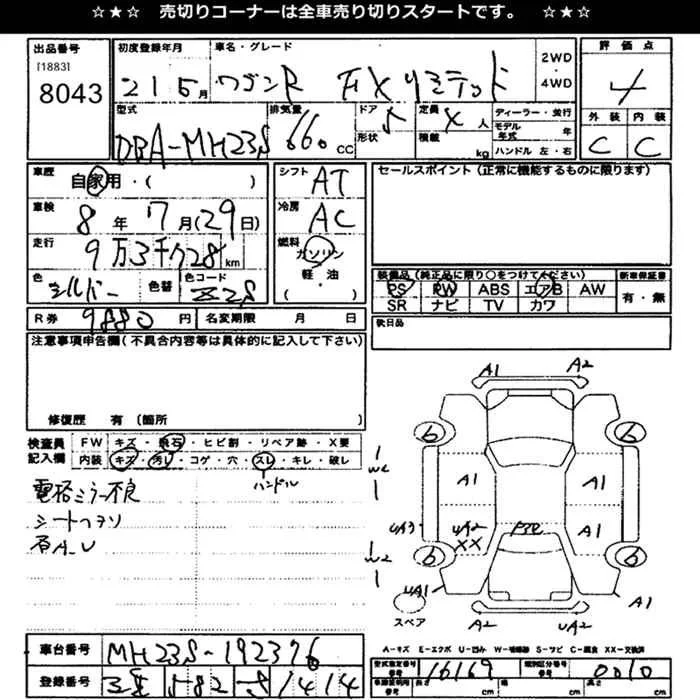 ☆★☆ 売切りコーナーは全車売り切りスタートです。 ☆★☆
出品番号
[1883]
8043
初度登録年月
21 5月
車名・グレード
ワゴンR FXリミテッド
2WD
・
4WD
評価点
4
型式
DBA-MH23S
排気量
660 CC
ドア
5
形状
定員
4 人
積載
kg
ディーラー・並行
モデル年式 年
ハンドル 左・右
外装 内装
C C
車歴
自家用・( )
車検
8年7月(29日)
走行
9万3千728km
色
シルバー
色替
色コード
Z2S
シフト
AT
冷房
AC
燃料
ガソリン
・
軽・油
( )
セールスポイント(正常に機能するものに限ります)
装備品(純正品に限り○をつけてください)
PS PW ABS エアB AW
SR ナビ TV カワ
新車保証書
有・無
後日品
R券 9880円
名変期限 月 日
注意事項申告欄(不具合内容等は具体的に記入して下さい)
修復歴 有(箇所 )
検査員
記入欄
FW キズ・飛石・ヒビ割・リペア跡・X要
内装 キズ・汚レ・コゲ・穴・スレ・キレ・破レ
ハンドル
電格ミラー不良
シートヘタリ
A1 A2
6 6
W2
A1 A1
UA3 UA2 XX A1
W2
6 6
UA1 A1
スペア
A2 UA2
A-キズ E-エクボ U-凹み W-補修跡 S-サビ C-腐食 XX-交換済
車台番号
MH23S-192376
登録番号
三重 582 す 1414
型式指定番号
16169
類別区分番号
0010
長さ参考 cm
幅参考 cm
高さ参考 cm